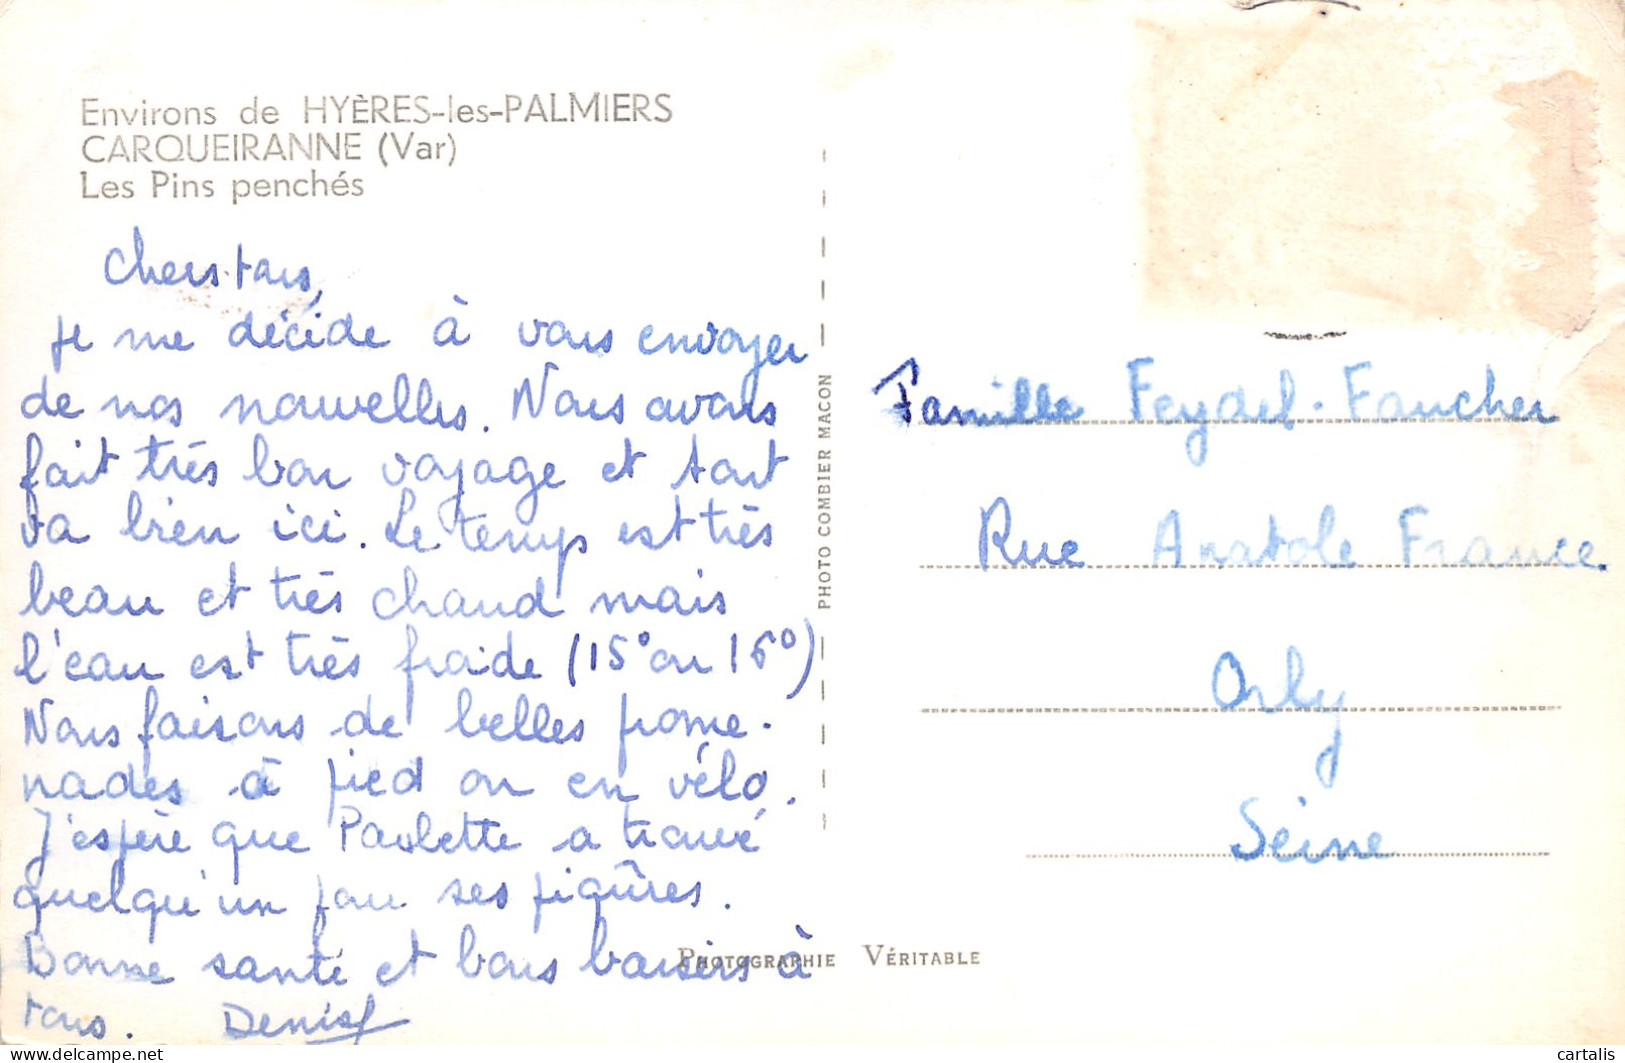 Environs de HYÈRES-les-PALMIERS
CARQUEIRANNE (Var)
Les Pins penchés
Chers tous,
Je me décide à vous envoyer
de nos nouvelles. Nous avons
fait très bon voyage et tout
va bien ici. Le temps est très
beau et très chaud mais
l'eau est très froide (15° ou 16°)
Nous faisons de belles prome-
nades à pied ou en vélo.
J'espère que Paulette a trouvé
quelqu'un pour ses piqûres.
Bonne santé et bons baisers à
tous. Denise
PHOTO COMBIER MACON
Famille Feydel-Faucher
Rue Anatole France.
Orly
Seine
PHOTOGRAPHIE VÉRITABLE
delcampe.net
cartalis